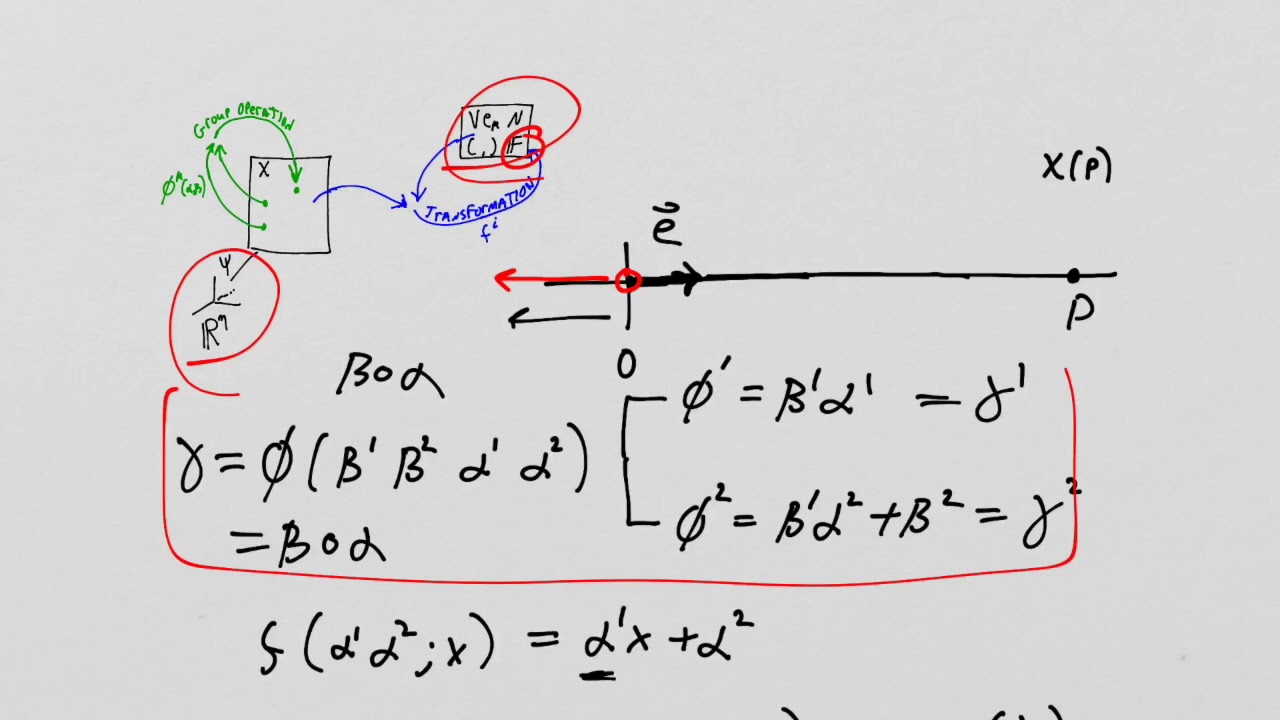 GROUP OPERATION
X
φᴬ(α,β)
ψ
ℝⁿ
TRANSFORMATION
fⁱ
(,) F
X(P)
e⃗
P
0
β∘α
γ = φ(β¹ β² α¹ α²)
= β∘α
φ¹ = β¹α¹ = γ¹
φ² = β¹α² + β² = γ²
f(α¹α²;x) = α¹x + α²